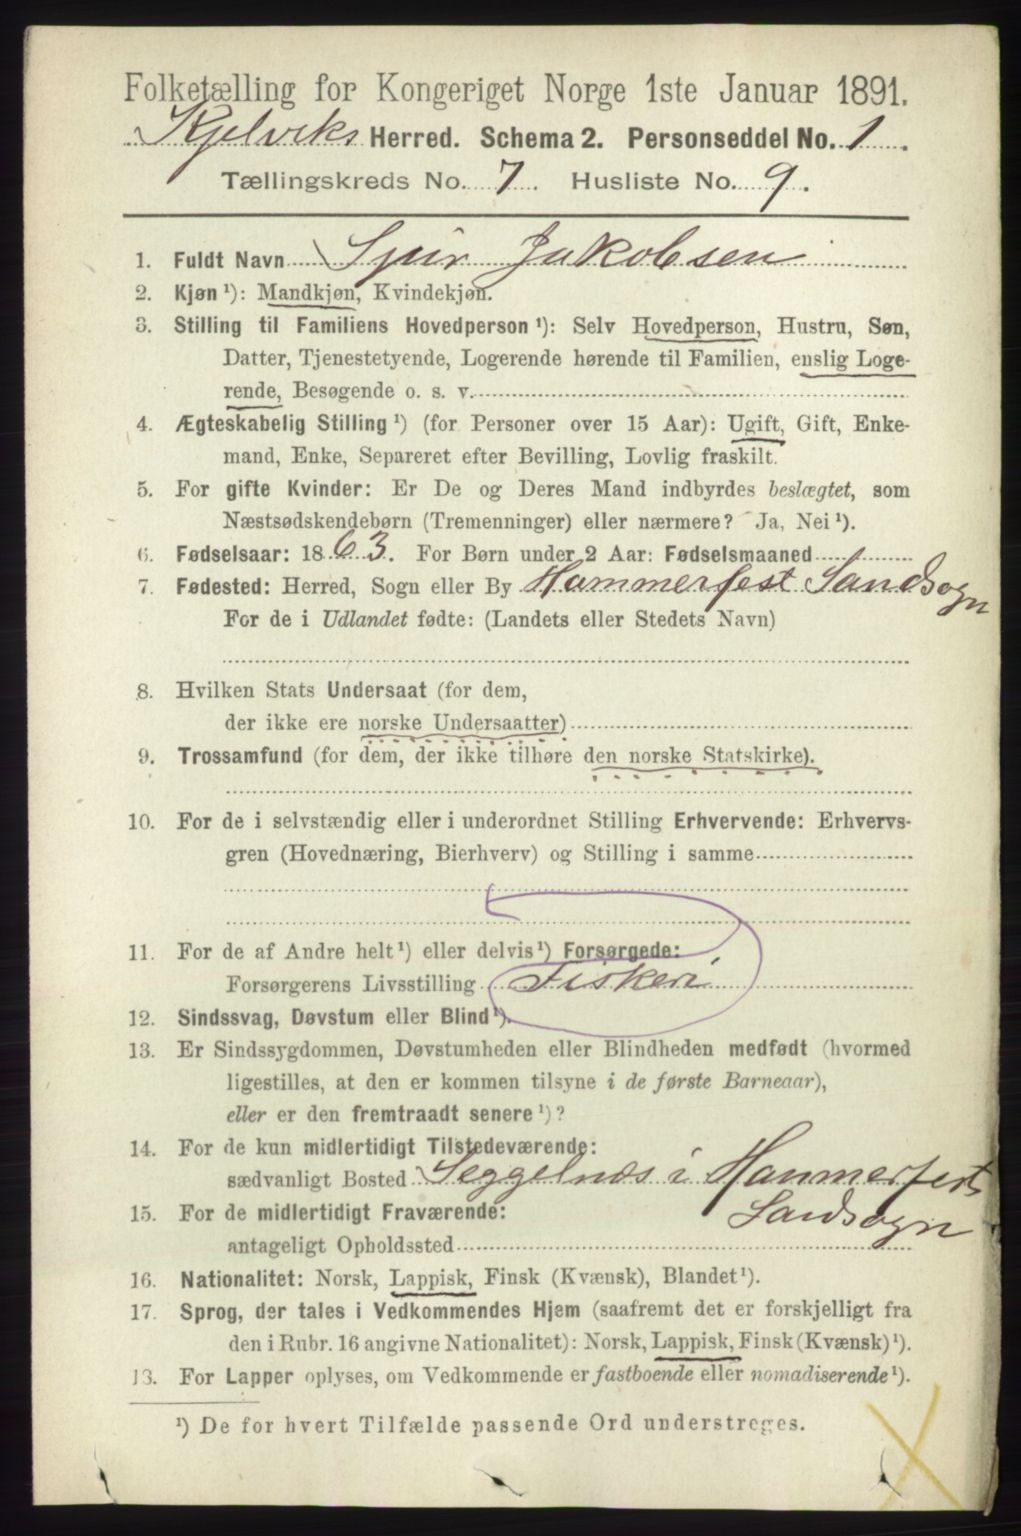 Folketælling for Kongeriget Norge 1ste Januar 1891.
Kjelviks Herred. Schema 2. Personseddel No. 1.
Tællingskreds No. 7. Husliste No. 9.
1. Fuldt Navn Sjur Jakobsen
2. Kjøn ¹): Mandkjøn, Kvindekjøn.
3. Stilling til Familiens Hovedperson ¹): Selv Hovedperson, Hustru, Søn,
Datter, Tjenestetyende, Logerende hørende til Familien, enslig Loge-
rende, Besøgende o. s. v.
4. Ægteskabelig Stilling ¹) (for Personer over 15 Aar): Ugift, Gift, Enke-
mand, Enke, Separeret efter Bevilling, Lovlig fraskilt.
5. For gifte Kvinder: Er De og Deres Mand indbyrdes beslægtet, som
Næstsødskendebørn (Tremenninger) eller nærmere? Ja, Nei ¹).
6. Fødselsaar: 1863. For Børn under 2 Aar: Fødselsmaaned
7. Fødested: Herred, Sogn eller By Hammerfest Landsogn
For de i Udlandet fødte: (Landets eller Stedets Navn)
8. Hvilken Stats Undersaat (for dem,
der ikke ere norske Undersaatter)
9. Trossamfund (for dem, der ikke tilhøre den norske Statskirke).
10. For de i selvstændig eller i underordnet Stilling Erhvervende: Erhvervs-
gren (Hovednæring, Bierhverv) og Stilling i samme
11. For de af Andre helt ¹) eller delvis ¹) Forsørgede:
Forsørgerens Livsstilling Fiskeri
12. Sindssvag, Døvstum eller Blind ¹).
13. Er Sindssygdommen, Døvstumheden eller Blindheden medfødt (hvormed
ligestilles, at den er kommen tilsyne i de første Barneaar),
eller er den fremtraadt senere ¹)?
14. For de kun midlertidigt Tilstedeværende:
sædvanligt Bosted Seggelnæs i Hammerfests
15. For de midlertidigt Fraværende: Landsogn
antageligt Opholdssted
16. Nationalitet: Norsk, Lappisk, Finsk (Kvænsk), Blandet ¹).
17. Sprog, der tales i Vedkommendes Hjem (saafremt det er forskjelligt fra
den i Rubr. 16 angivne Nationalitet): Norsk, Lappisk, Finsk (Kvænsk) ¹).
18. For Lapper oplyses, om Vedkommende er fastboende eller nomadiserende ¹).
¹) De for hvert Tilfælde passende Ord understreges.